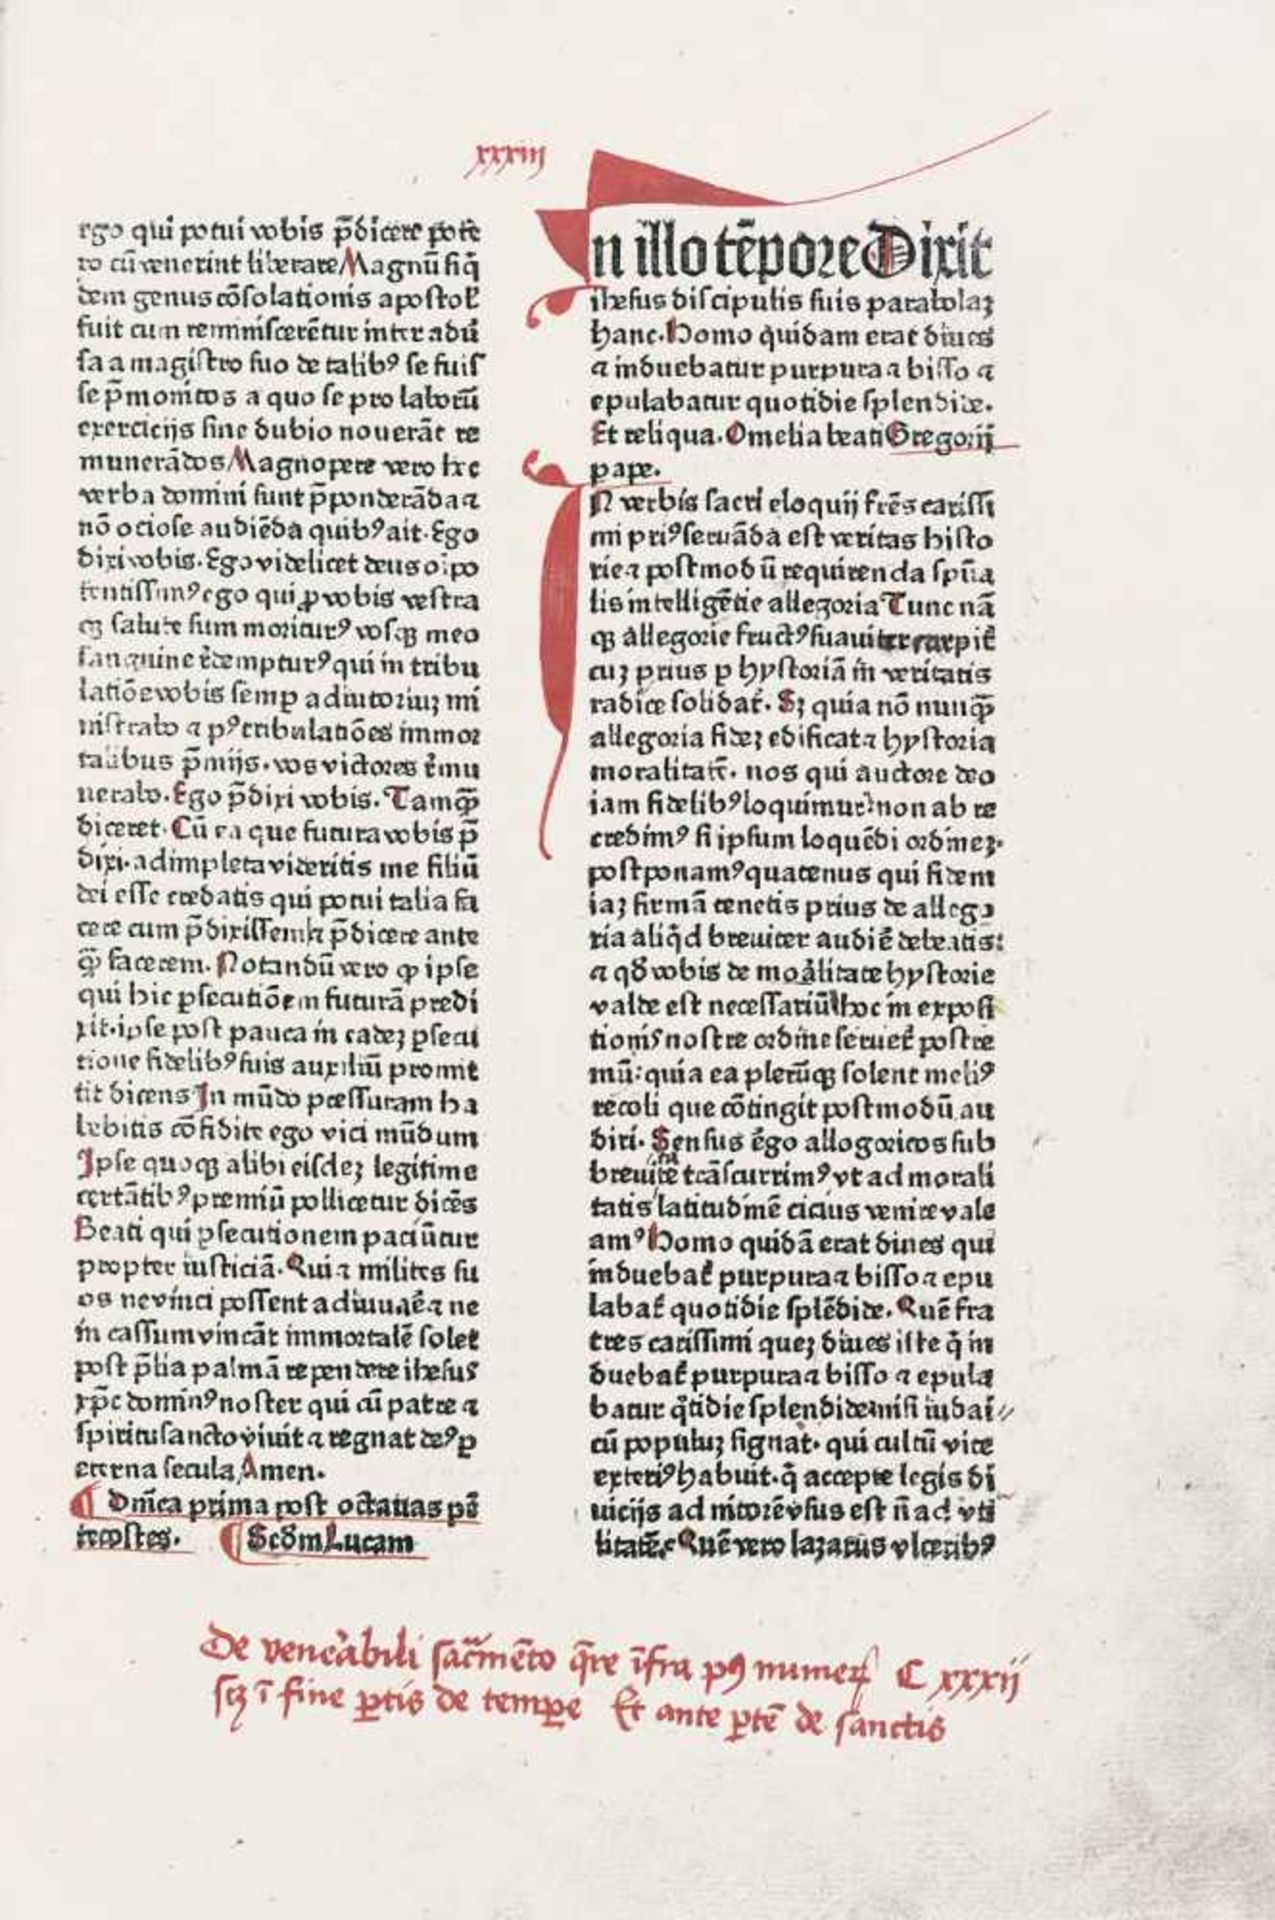 xxxiij
ego qui potui vobis p̄dicere potē
ro cū venerint liberare Magnū siq̄
dem genus cōsolationis apostoł
fuit cum reminiscerētur inter adū
sa a magistro suo de talibꝰ se fuis
se p̄monitos a quo se pro laborū
exercicijs sine dubio nouerāt re
munerādos Magnopere vero hec
verba domini sunt p̄ponderāda ⁊
nō ociose audiēda quibꝰ ait. Ego
dixi vobis. Ego videlicet deus oīpo
tentissimꝰ ego qui ꝓ vobis vestra
qꝫ salute sum moriturꝰ vosqꝫ meo
sanguine rēdempturꝰ qui in tribu
latiōe vobis semꝑ adiutoriuꝫ mi
nistrabo ⁊ pꝰ tribulatiōes immor
talibus p̄mijs. vos victores rēmu
nerabo. Ego p̄dixi vobis. Tamqꝫ̄
diceret. Cū ea que futura vobis p̄
dixi. adimpleta videritis me filiū
dei esse credatis qui potui talia fa
cere cum p̄dixissem p̄dicere ante
qꝫ̄ facerem. Notandū vero ꝙ ipse
qui hic ꝑsecutiōem futurā predi
xit. ipse post pauca in eadeꝫ ꝑsecu
tione fidelibꝰ suis auxiliū promit
tit dicens In mūdo pressuram ha
bebitis cōfidite ego vici mūdum
Ipse quoqꝫ alibi eisdeꝫ legitime
certātibꝰ premiū pollicetur dicēs
Beati qui ꝑsecutionem paciūtur
propter iusticiā. Qui ⁊ milites su
os ne vinci possent adiuuaē̄ ⁊ ne
in cassum vincāt immortalē solet
post p̄lia palmā rependere ihesus
xp̄c dominꝰ noster qui cū patre ⁊
spiritusancto viuit ⁊ regnat deꝰ ꝑ
eterna secula Amen.
¶ Dn̄ica prima post octauas pē
tecostes. ¶ Scd̄m Lucam
In illo tēpore Dixit
ihesus discipulis suis parabolaꝫ
hanc. Homo quidam erat diues
⁊ induebatur purpura ⁊ bisso ⁊
epulabatur quotidie splendide.
Et reliqua. Omelia beati Gregorij
pape.
IN verbis sacri eloquij frēs carissi
mi priꝰ seruāda est veritas histo
rie ⁊ postmodū requirenda spūa
lis intelligētie allegoria Tunc nā
qꝫ allegorie fructꝰ suauiter carpiť
cuꝫ prius ꝑ hystoriā in veritatis
radice solidať. Sꝫ quia nō nunqꝫ̄
allegoria fideꝫ edificat ⁊ hystoria
moralitatē. nos qui auctore deo
iam fidelibꝰ loquimur: non ab re
credimꝰ si ipsum loquēdi ordineꝫ.
postponamꝰ quatenus qui fidem
iaꝫ firmā tenetis prius de allego
ria aliq̄d breuiter audiē debeatis:
⁊ qd̄ vobis de moralitate hystorie
valde est necessariū hoc in exposi
tionis nostre ordine serueť postre
mū: quia ea plerūqꝫ solent meliꝰ
recoli que cōtingit postmodū au
diri. Sensus ego allogoricos sub
breuitē trāscurrimꝰ vt ad morali
tatis latitudinē cicius venire vale
amꝰ Homo quidā erat diues qui
induebať purpura ⁊ bisso ⁊ epu
labať quotidie splēdide. Quē fra
tres carissimi queꝫ diues iste q̄ in
duebať purpura ⁊ bisso ⁊ epula
batur q̄tidie splendide nisi iudai//
cū populuꝫ signat. qui cultū vite
exteriꝰ habuit. q̄ accepte legis di
uicijs ad nitorē vsus est n̄ ad vti
litatē. Quē vero lazarus vlceribꝰ
De venerabili sacrāmēto q̄re īfra pꝰ numeꝝ C xxxij
scꝫ ī fine ꝑtis de tempore Et ante ꝑtē de sanctis